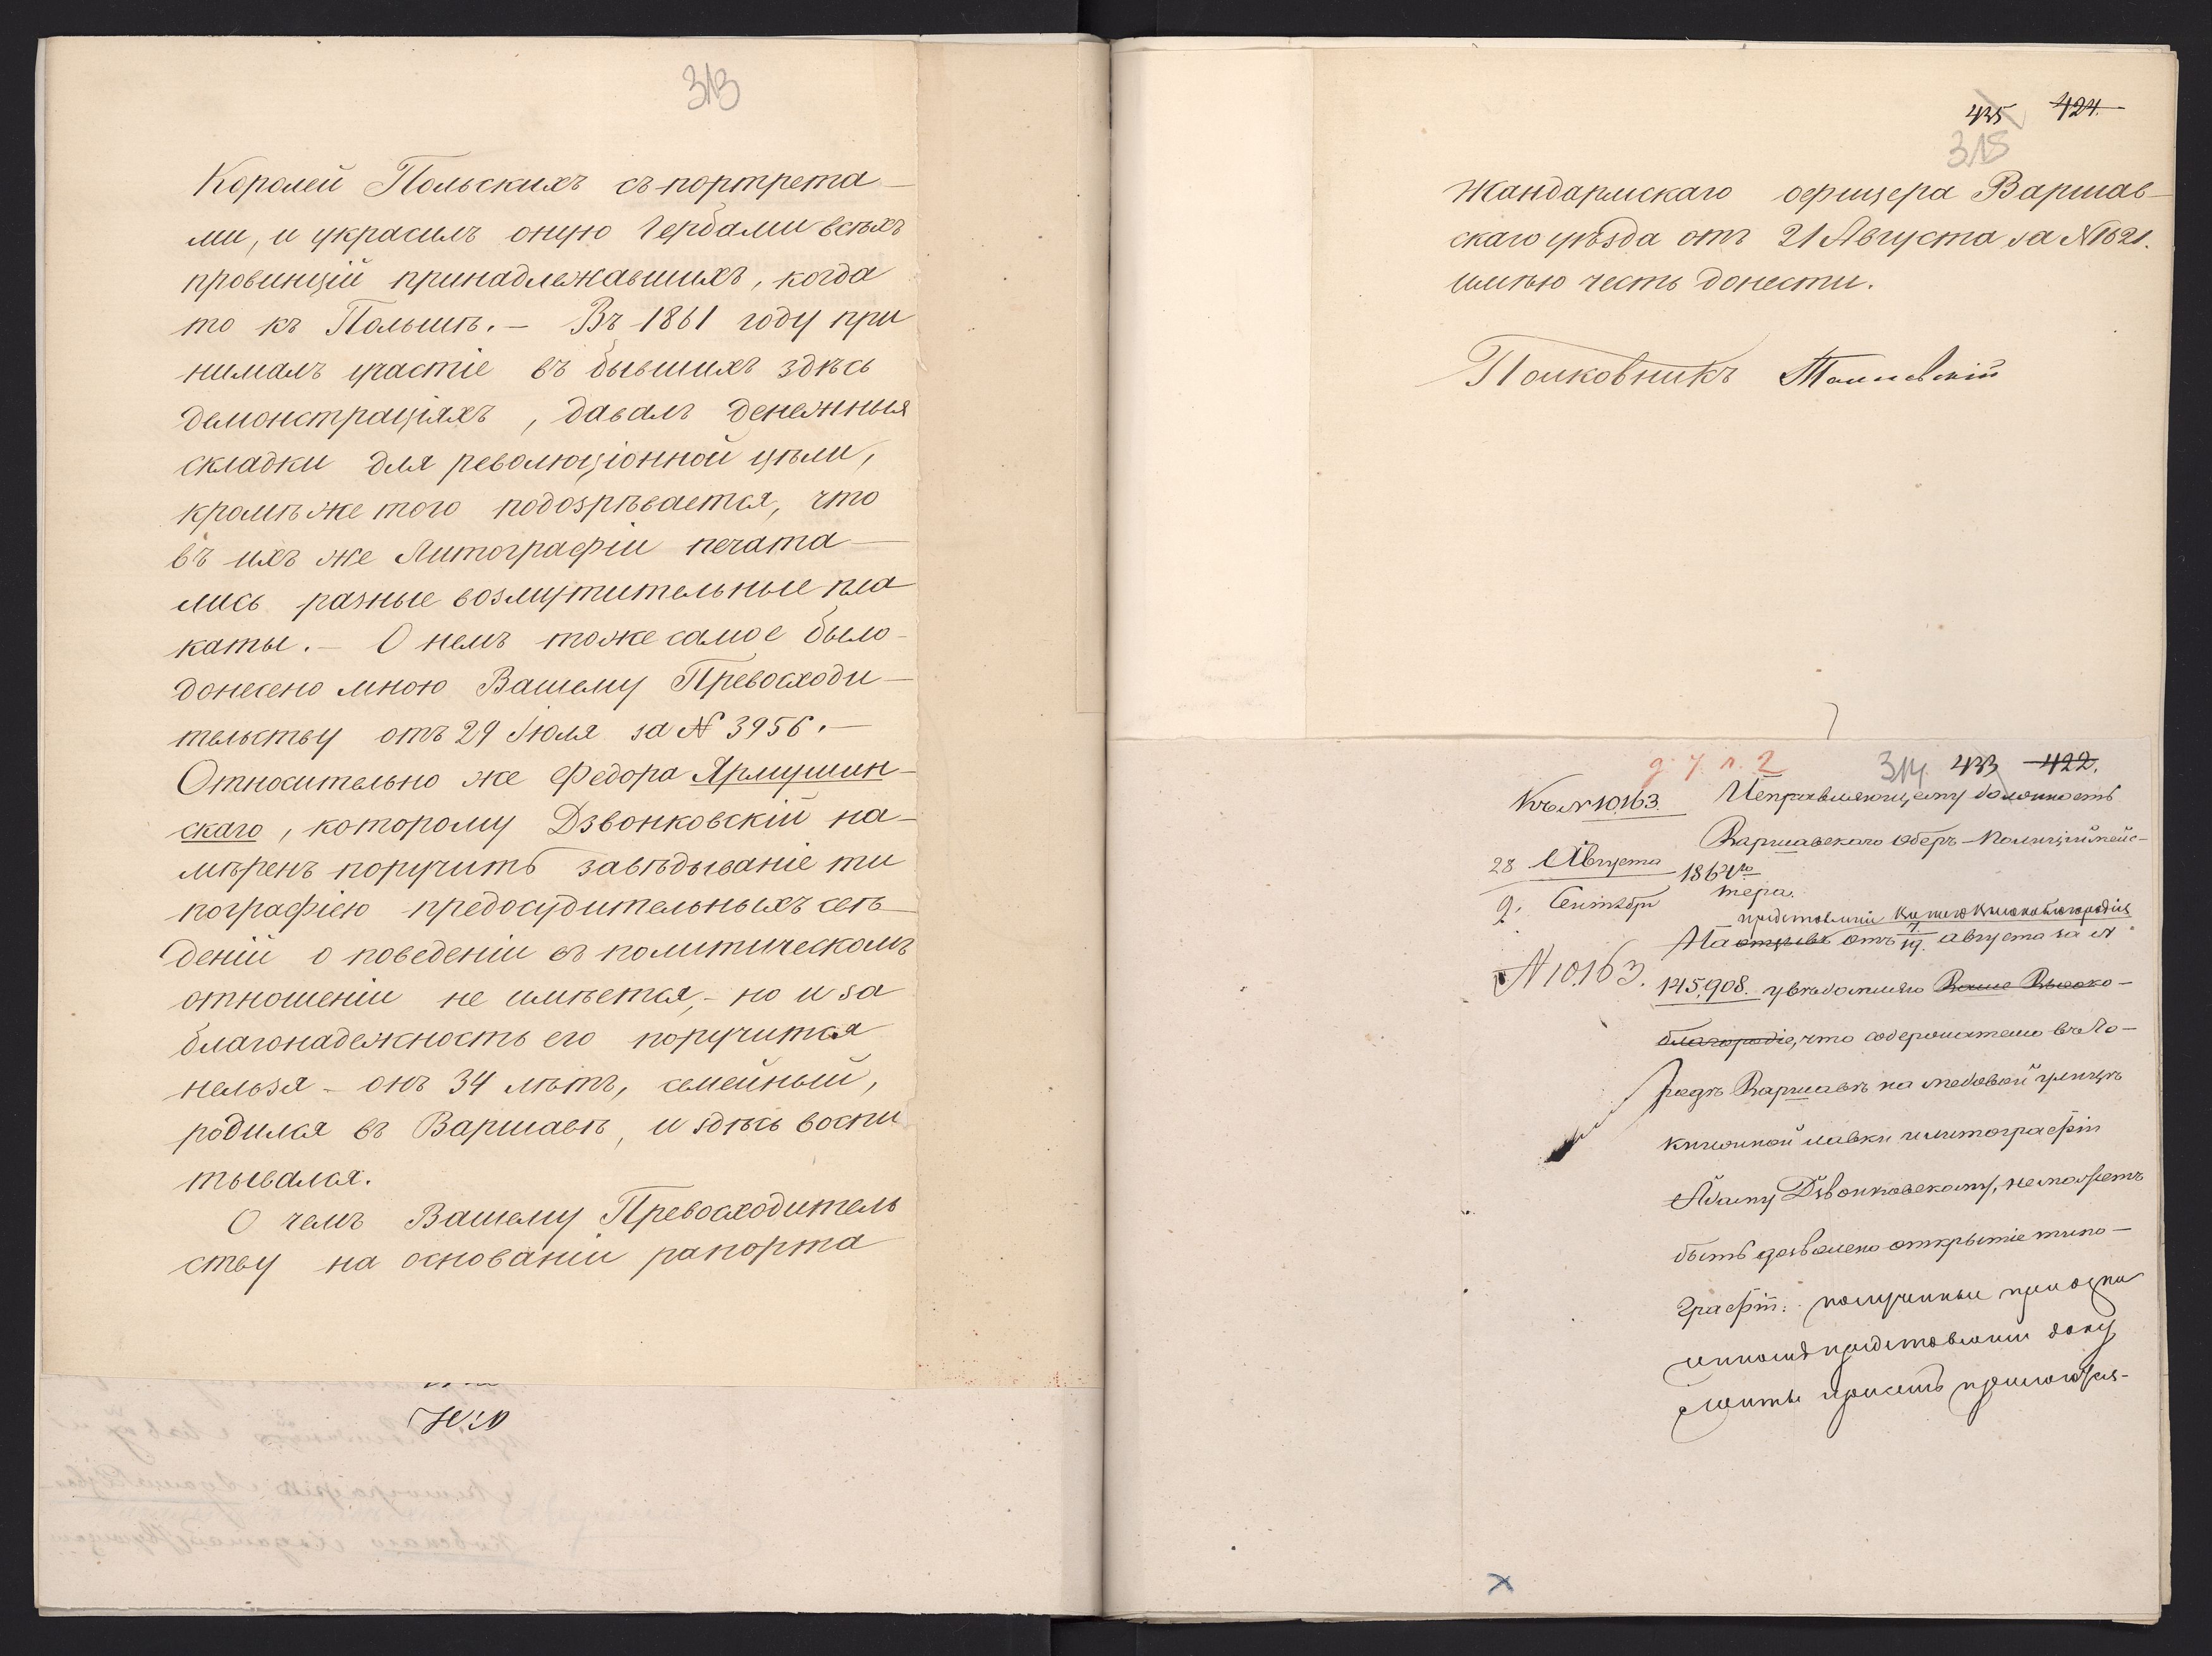 313
Королей Польскихъ съ портрета—
ми, и украсилъ оную Гербами всѣхъ
провинцій принадлежавшихъ, когда
то къ Польшѣ. — Въ 1861 году при
нималъ участіе въ бывшихъ здѣсь
демонстраціяхъ, давалъ денежныя
складки для революціонной цѣли,
кромѣ же того подозрѣвается, что
въ ихъ же Литографіи печата—
лись разные возмутительные пла
каты. — О немъ тоже самое было
донесено мною Вашему Превосходи—
тельству отъ 29 Іюля за № 3956. —
Относительно же Федора Ярмушин—
скаго, которому Дзвонковскій на—
мѣренъ поручить завѣдываніе ти
пографіею предосудительныхъ свѣ—
деній о поведеніи въ политическомъ
отношеніи не имѣется, — но и за
благонадежность его поручится
нельзя — онъ 34 лѣтъ, семейный,
родился въ Варшавѣ, и здѣсь воспи
тывался.
О чемъ Вашему Превосходитель
ству на основаніи рапорта
435 424.
315
Жандармскаго офицера Варшав—
скаго уѣзда отъ 21 Августа за № 1621.
имѣю честь донести.
Полковникъ
д. у. л. 2
314 433 422.
Къ № 10163. Исправляющему должность
Варшавскаго Оберъ-Полиціймейс—
тера.
28 Августа
9. Сентября 1864 го
представленіе
На отзывъ отъ 7/19. августа за №
№ 10.163. 145,908. увѣдомляю Ваше Высоко—
благородіе, что содержателю въ го—
родѣ Варшавѣ на медовой улицѣ
книжной лавки и литографіи
Адаму Дзвонковскому, не можетъ
быть дозволено открытіе типо—
графіи: полученные при озна
ченномъ представленіи доку
менты при семъ прилагаются.